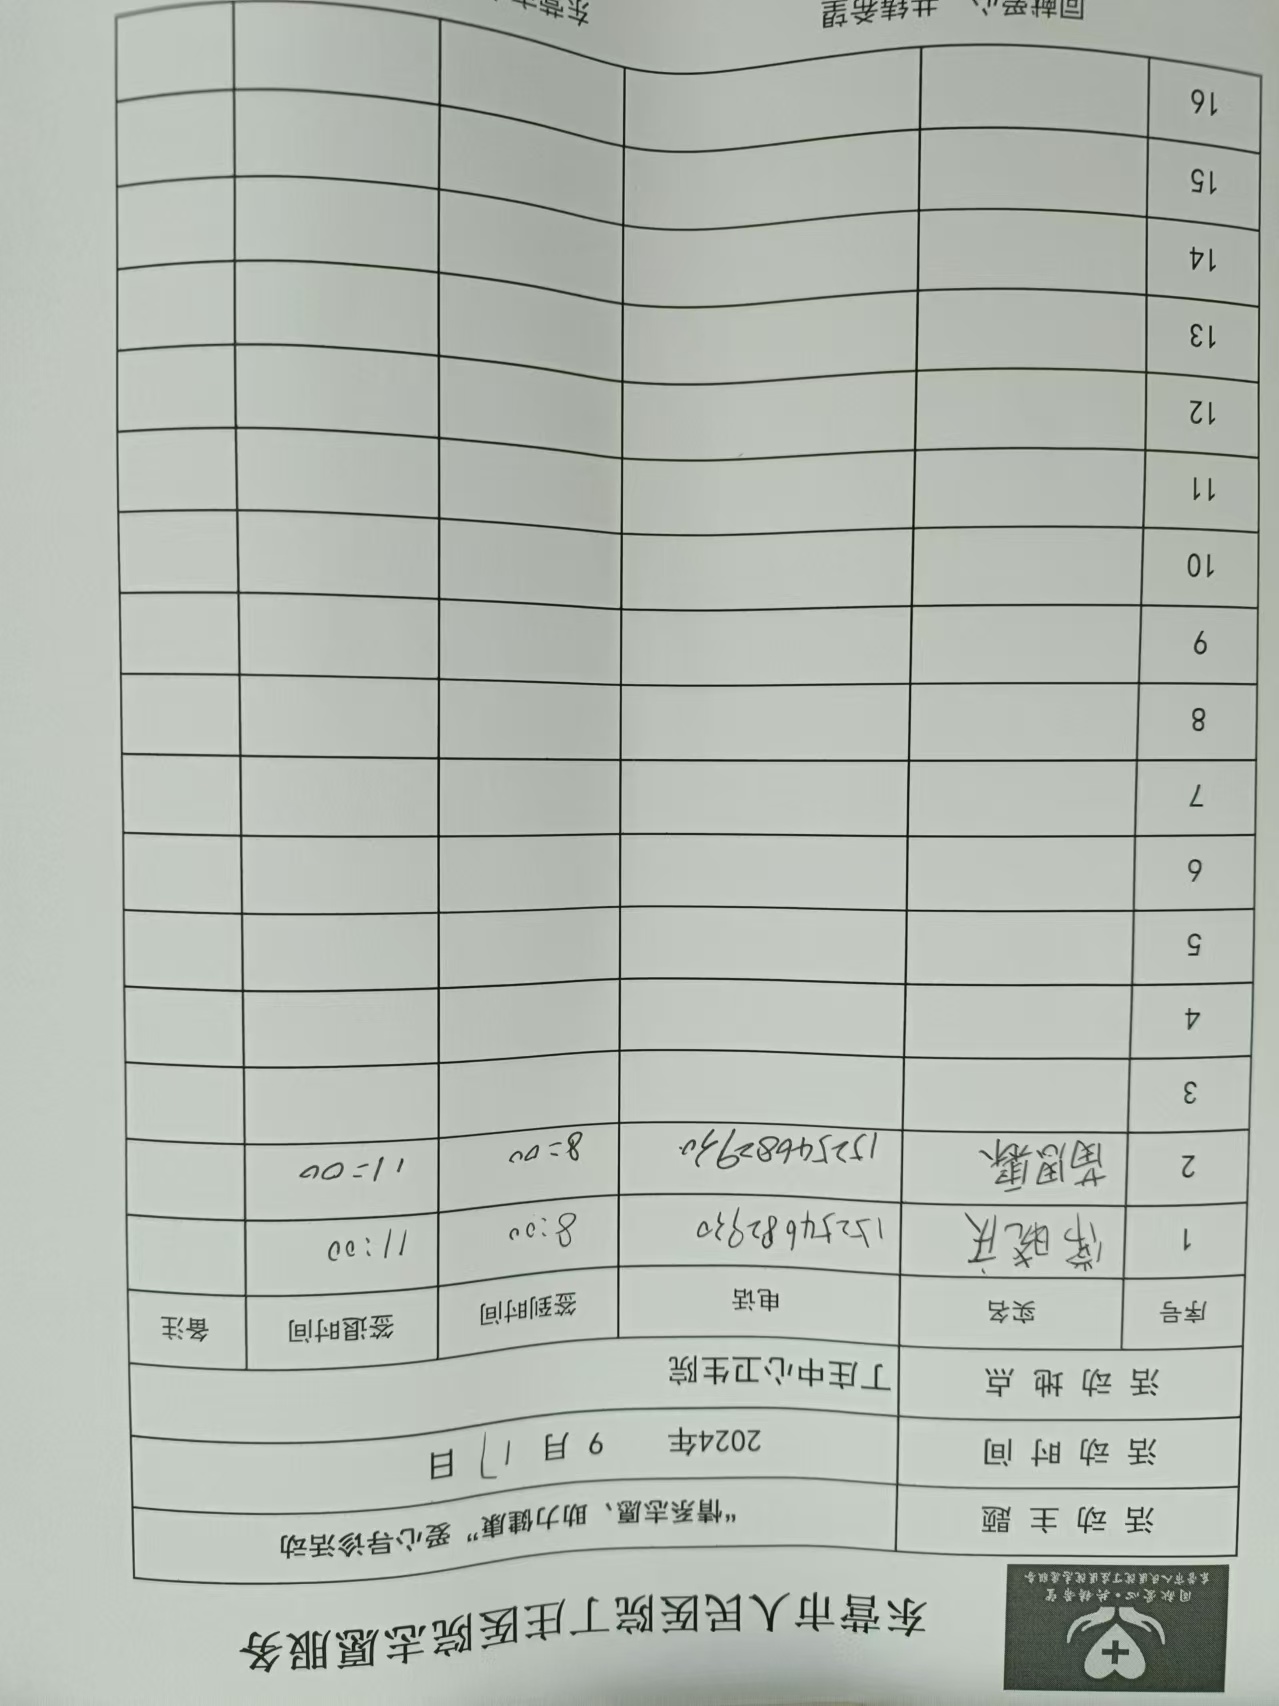 同献爱心·共铸希望
东营市人民医院丁庄医院志愿服务
东营市人民医院丁庄医院志愿服务
活动主题 “情系志愿、助力健康”爱心导诊活动
活动时间 2024年 9月17日
活动地点 丁庄中心卫生院
序号 实名 电话 签到时间 签退时间 备注
1 常晓庆 15254682930 8:00 11:00
2 15254682930 8:00 11:00
3
4
5
6
7
8
9
10
11
12
13
14
15
16
回献爱心、共铸希望 东营市